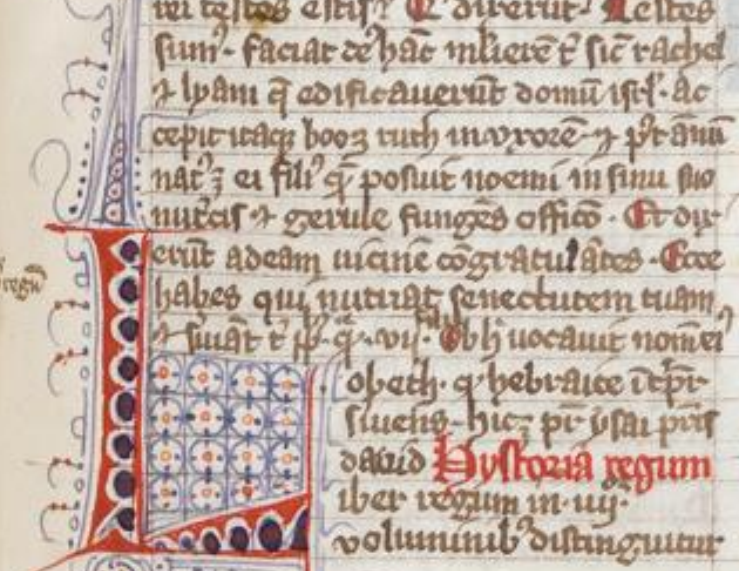 rei testes estis? Et dixerūt. Testes
sumꝰ. faciat deꝰ hāc mlierē t̄ sic̄ rachel
⁊ lyam q̄ edificauerūt domū isrl̓. ac
cepit itaq̨ booz ruth in vxorē. ⁊ pꝰt ānū
natꝰ ē ei filiꝰ q̄ posuit noemi in sinu suo
nut̓cis ⁊ gerule fungēs officō. Et dix̓
erūt ad eam uicine cōgratulātes. Ecce
habes qui nutriat senectutem tuam
⁊ uocauit nom̄ eiꝰ
obeth. q̓ hebraice īt̓pr̄
seruiens. hic ē pr̄ ysai pr̄is
dauid Hystoria regum
iber regum in .iiij.
voluminibꝰ distinguitur
regū